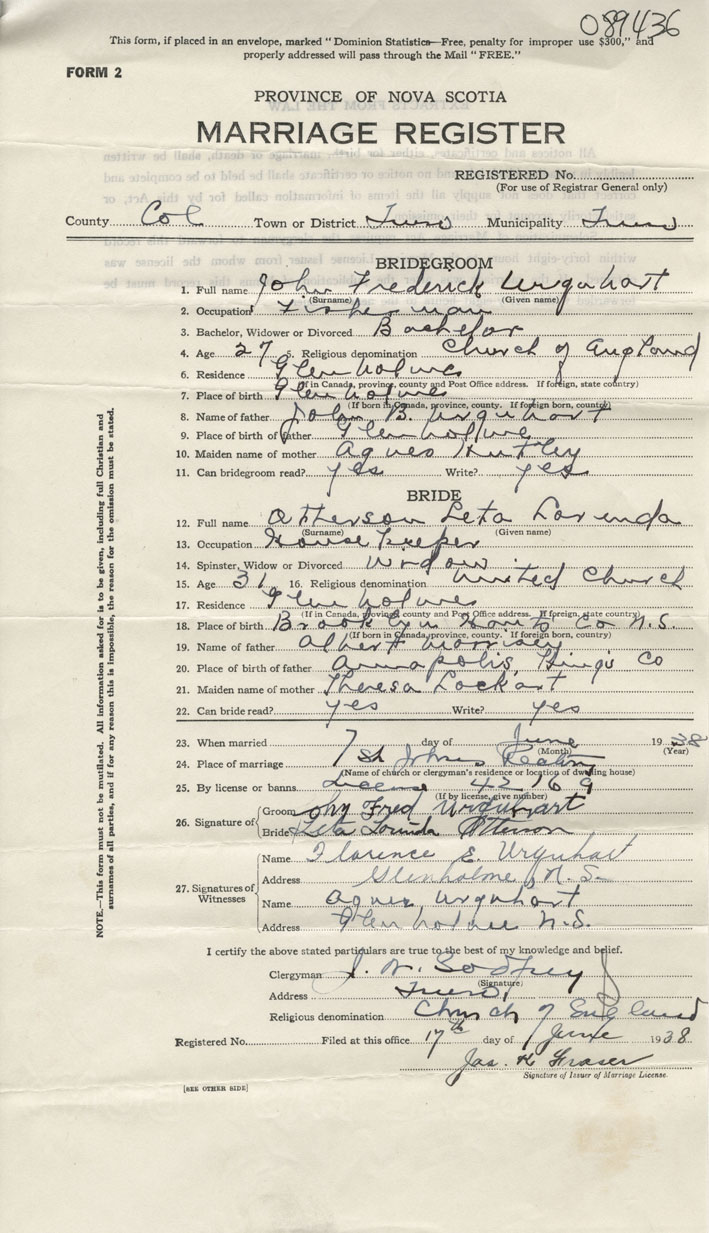 089436
This form, if placed in an envelope, marked "Dominion Statistics—Free, penalty for improper use $300," and
properly addressed will pass through the Mail "FREE."
FORM 2
PROVINCE OF NOVA SCOTIA
MARRIAGE REGISTER
REGISTERED No.
(For use of Registrar General only)
County Col Town or District Truro Municipality Truro
BRIDEGROOM
1. Full name John Frederick Urquhart
(Surname) (Given name)
2. Occupation Fisherman
3. Bachelor, Widower or Divorced Bachelor
4. Age 27 5. Religious denomination Church of England
6. Residence Glenholme
(If in Canada, province, county and Post Office address. If foreign, state country)
7. Place of birth Glenholme
(If born in Canada, province, county. If foreign born, country)
8. Name of father John B. Urquhart
9. Place of birth of father Glenholme
10. Maiden name of mother Agnes
11. Can bridegroom read? yes Write? yes
BRIDE
12. Full name Otterson Leta Lorinda
(Surname) (Given name)
13. Occupation House Keeper
14. Spinster, Widow or Divorced Widow
15. Age 31 16. Religious denomination United Church
17. Residence Glenholme
(If in Canada, province, county and Post Office address. If foreign, state country)
18. Place of birth Brooklyn Hants Co N.S.
(If born in Canada, province, county. If foreign born, country)
19. Name of father Albert
20. Place of birth of father Annapolis, Kings Co
21. Maiden name of mother Theresa Lockart
22. Can bride read? yes Write? yes
23. When married 7 day of June 1938
(Month) (Year)
24. Place of marriage St Johns
(Name of church or clergyman's residence or location of dwelling house)
25. By license or banns License 42169
(If by license, give number)
26. Signature of Groom John Fred Urquhart
Bride Leta Lorinda Otterson
27. Signatures of Witnesses
Name Florence E. Urquhart
Address Glenholme N.S.
Name Agnes Urquhart
Address Glenholme N.S.
I certify the above stated particulars are true to the best of my knowledge and belief.
Clergyman J. W. Godfrey
(Signature)
Address Truro
Religious denomination Church of England
Registered No. Filed at this office 17th day of June 1938
Jas. K Fraser
Signature of Issuer of Marriage License.
[SEE OTHER SIDE]
NOTE.—This form must not be mutilated. All information asked for is to be given, including full Christian and
surnames of all parties, and if for any reason this is impossible, the reason for the omission must be stated.